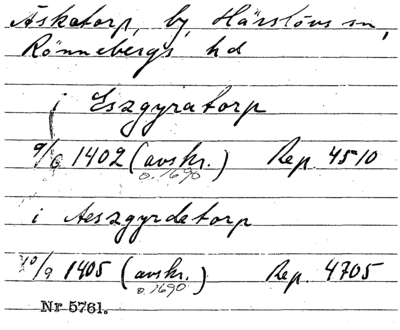 Åskatorp, by, Härslövs sn,
Rönnebergs hd
i Eszgyratorp
9/6 1402 (avskr.) Rep. 4510
o. 1690
i Aeszgyrdetorp
10/9 1405 (avskr.) Rep. 4705
o. 1690
Nr 5761.